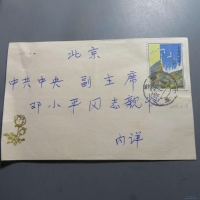 北京
中共中央 副主席
邓小平同志亲收
内详